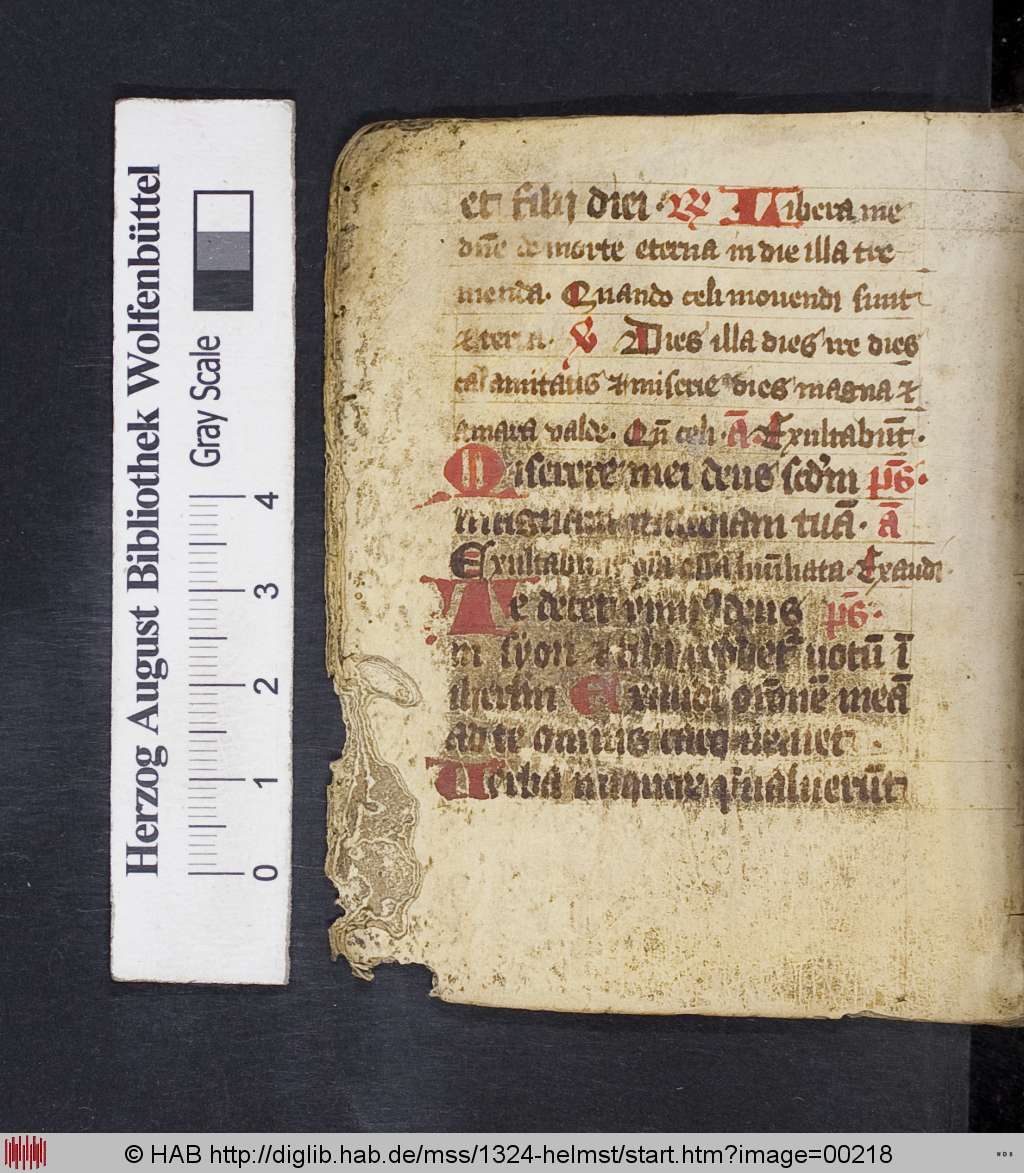 Herzog August Bibliothek Wolfenbüttel
Gray Scale
0 1 2 3 4
et filij diei · R Libera me
dn̄e de morte eterna in die illa tre
menda · Quando celi mouendi sunt
& terra · V Dies illa dies ire dies
calamitatis & miserie dies magna &
amara valde · Qn̄ celi · Ā Exultabūt ·
Miserere mei deus scd'm p̄s ·
magnam tuā · Ā
Exultabūt ossa humiliata · Exaudi
Te decet deus p̄s ·
in syon & tibi votū ī
iherlm Exaudi or̄onē meā
ad te omnis caro veniet ·
Verba p̄ualuerūt
© HAB http://diglib.hab.de/mss/1324-helmst/start.htm?image=00218